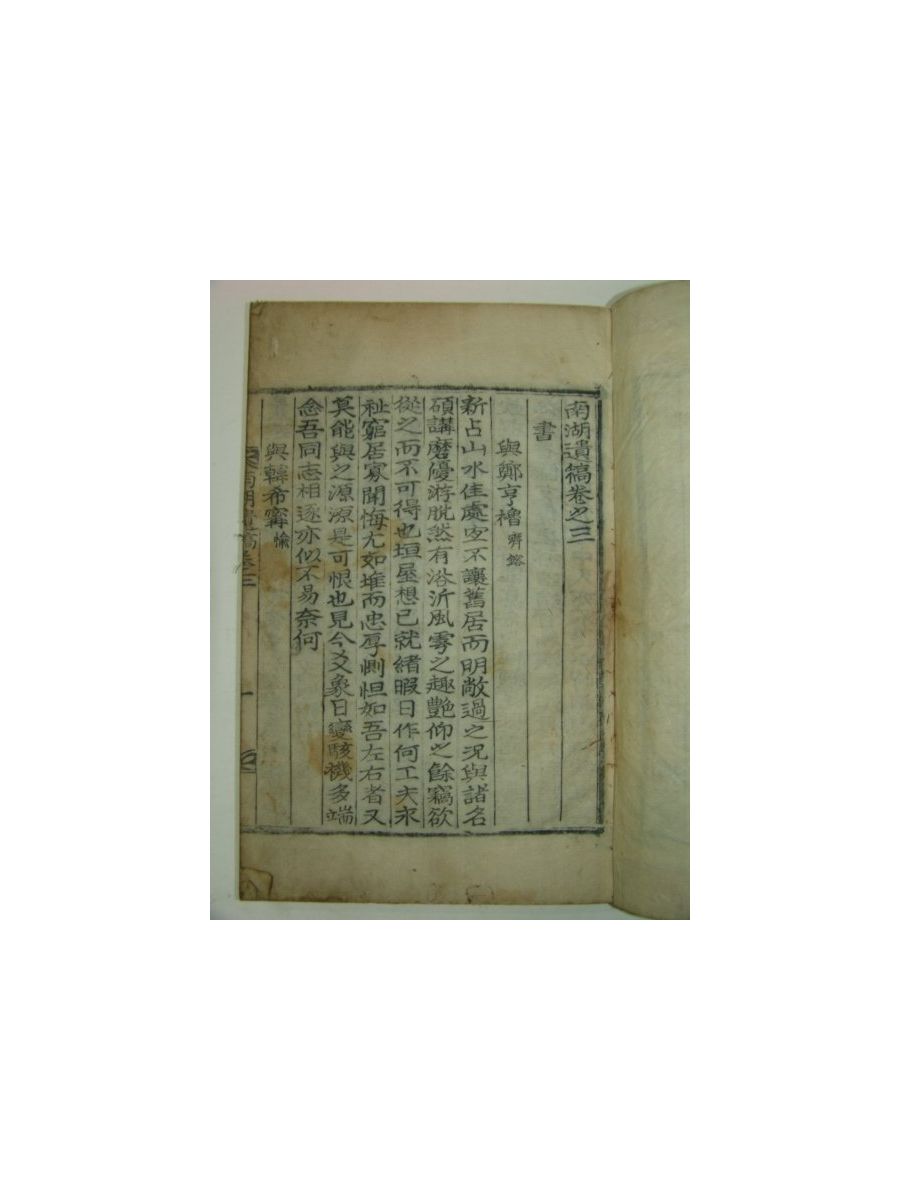 南湖遺稿卷之三
書
與鄭亨櫓 齊鎔
新占山水佳處固不讓舊居而明敞過之況與諸名
碩講磨優游脫然有浴沂風雩之趣艶仰之餘竊欲
從之而不可得也垣屋想已就緖暇日作何工夫永
祉窮居寡聞悔尤如堆而忠厚惻怛如吾左右者又
莫能與之源源是可恨也見今爻象日變駭機多端
念吾同志相逐亦似不易奈何
與韓希寗 愉
南湖遺稿卷三 一